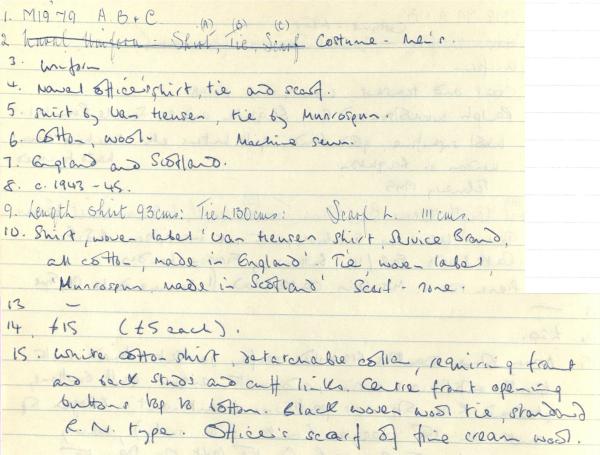 1. M1979 A. B + C.
(A) (B) (C)
2 Naval Uniform - Shirt, Tie, Scarf Costume - Men's.
3. Uniform
4. Naval officer's shirt, tie and scarf.
5. Shirt by Van Heusen, tie by Munrospun.
6. Cotton, wool. Machine sewn.
7. England and Scotland.
8. c. 1943 - 45.
9. Length Shirt 93cms: Tie L 130cms: Scarf L. 111 cms.
10. Shirt, woven label 'Van Heusen Shirt, Service Brand,
all cotton, made in England' Tie, woven label,
'Munrospun, made in Scotland' Scarf - none.
13 -
14, £15 (£5 each).
15. White cotton shirt, detachable collar, requiring front
and back studs and cuff links. Centre front opening
buttons top to bottom. Black woven wool tie, standard
R.N. type. Officer's scarf of fine cream wool.